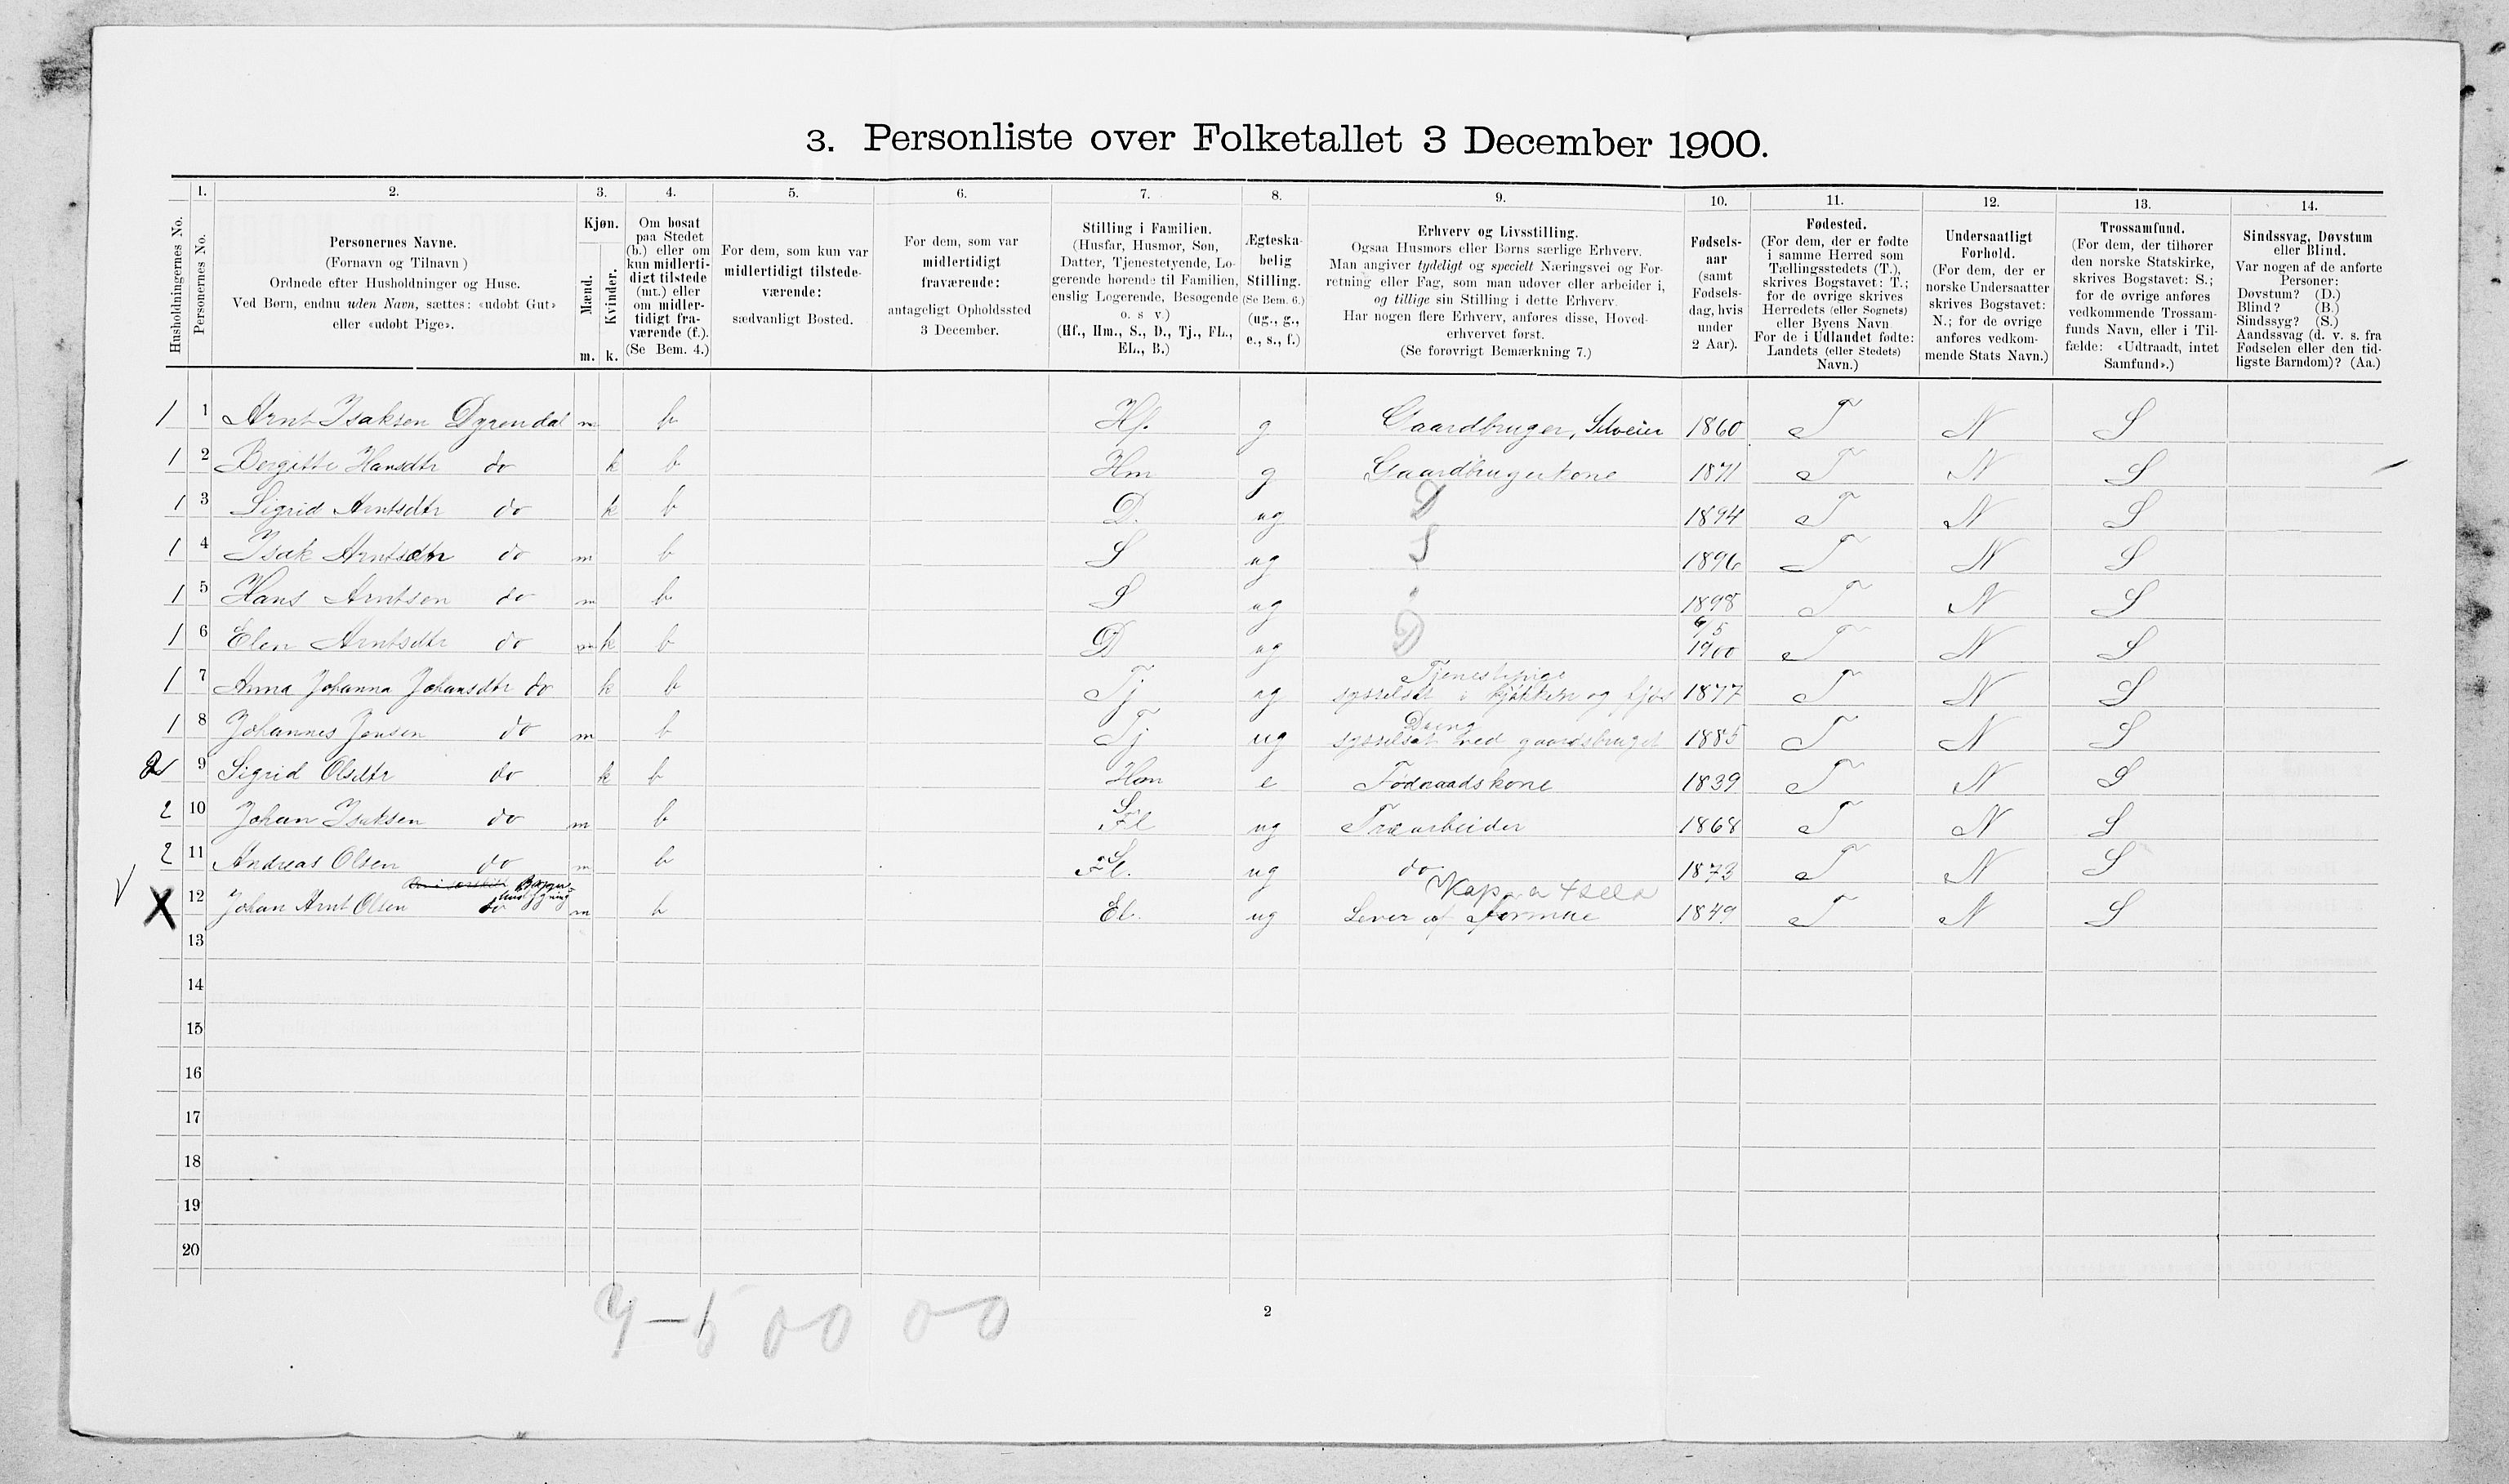 3. Personliste over Folketallet 3 December 1900.
1. 2. 3. 4. 5. 6. 7. 8. 9. 10. 11. 12. 13. 14.
Husholdningernes No.
Personernes No.
Personernes Navne.
(Fornavn og Tilnavn)
Ordnede efter Husholdninger og Huse.
Ved Børn, endnu uden Navn, sættes: «udøbt Gut»
eller «udøbt Pige».
Kjøn.
Mænd.
Kvinder.
m. k.
Om bosat
paa Stedet
(b.) eller om
kun midlerti-
digt tilstede
(mt.) eller
om midler-
tidigt fra-
værende (f.).
(Se Bem. 4.)
For dem, som kun var
midlertidigt tilstede-
værende:
sædvanligt Bosted.
For dem, som var
midlertidigt
fraværende:
antageligt Opholdssted
3 December.
Stilling i Familien.
(Husfar, Husmor, Søn,
Datter, Tjenestetyende, Lo-
gerende hørende til Familien,
enslig Logerende, Besøgende
o. s v.)
(Hf., Hm., S., D., Tj., FL.,
EL., B.)
Ægteska-
belig
Stilling.
(Se Bem. 6.)
(ug., g.,
e., s., f.)
Erhverv og Livsstilling.
Ogsaa Husmors eller Børns særlige Erhverv.
Man angiver tydeligt og specielt Næringsvei og For-
retning eller Fag, som man udøver eller arbeider i,
og tillige sin Stilling i dette Erhverv.
Har nogen flere Erhverv, anføres disse, Hoved-
erhvervet først.
(Se forøvrigt Bemærkning 7.)
Fødsels-
aar
(samt
Fødsels-
dag, hvis
under
2 Aar).
Fødested.
(For dem, der er fødte
i samme Herred som
Tællingsstedets (T.),
skrives Bogstavet: T.;
for de øvrige skrives
Herredets (eller Sognets)
eller Byens Navn
For de i Udlandet fødte:
Landets (eller Stedets)
Navn.)
Undersaatligt
Forhold.
(For dem, der er
norske Undersaatter
skrives Bogstavet:
N.; for de øvrige
anføres vedkom-
mende Stats Navn.)
Trossamfund.
(For dem, der tilhører
den norske Statskirke,
skrives Bogstavet: S.;
for de øvrige anføres
vedkommende Trossam-
funds Navn, eller i Til-
fælde: «Udtraadt, intet
Samfund».)
Sindssvag, Døvstum
eller Blind.
Var nogen af de anførte
Personer:
Døvstum? (D.)
Blind? (B.)
Sindssyg? (S.)
Aandssvag (d. v. s. fra
Fødselen eller den tid-
ligste Barndom)? (Aa.)
1 1 Arnt Isaksen Dyrendal m b Hf. g Gaardbruger, Selveier 1860 T N S
1 2 Bergitte Hansdtr do k b Hm g Gaardbrugerkone 1871 T N S
1 3 Sigrid Arntsdtr do k b D. ug D 1894 T N S
1 4 Isak Arntsdtr do m b S ug S 1896 T N S
1 5 Hans Arntsen do m b S ug 1898 T N S
1 6 Elen Arntsdtr do k b D ug D 6/5 1900 T N S
Tjenestepige
1 7 Anna Johanna Johansdtr do k b Tj ug sysselsat i kjøkken og fjøs 1877 T N S
Dreng
1 8 Johannes Jensen do m b Tj ug sysselsat med gaardsbruget 1885 T N S
2 9 Sigrid Olsdtr do k b Hm e Føderaadskone 1839 T N S
2 10 Johan Isaksen do m b S Fl ug Træarbeider 1868 T N S
2 11 Andreas Olsen do m b Fl. ug do 1873 T N S
X 12 Johan Arnt Olsen do m b El. ug Lever af formue 1849 T N S
13
14
15
16
17
18
19
20
2